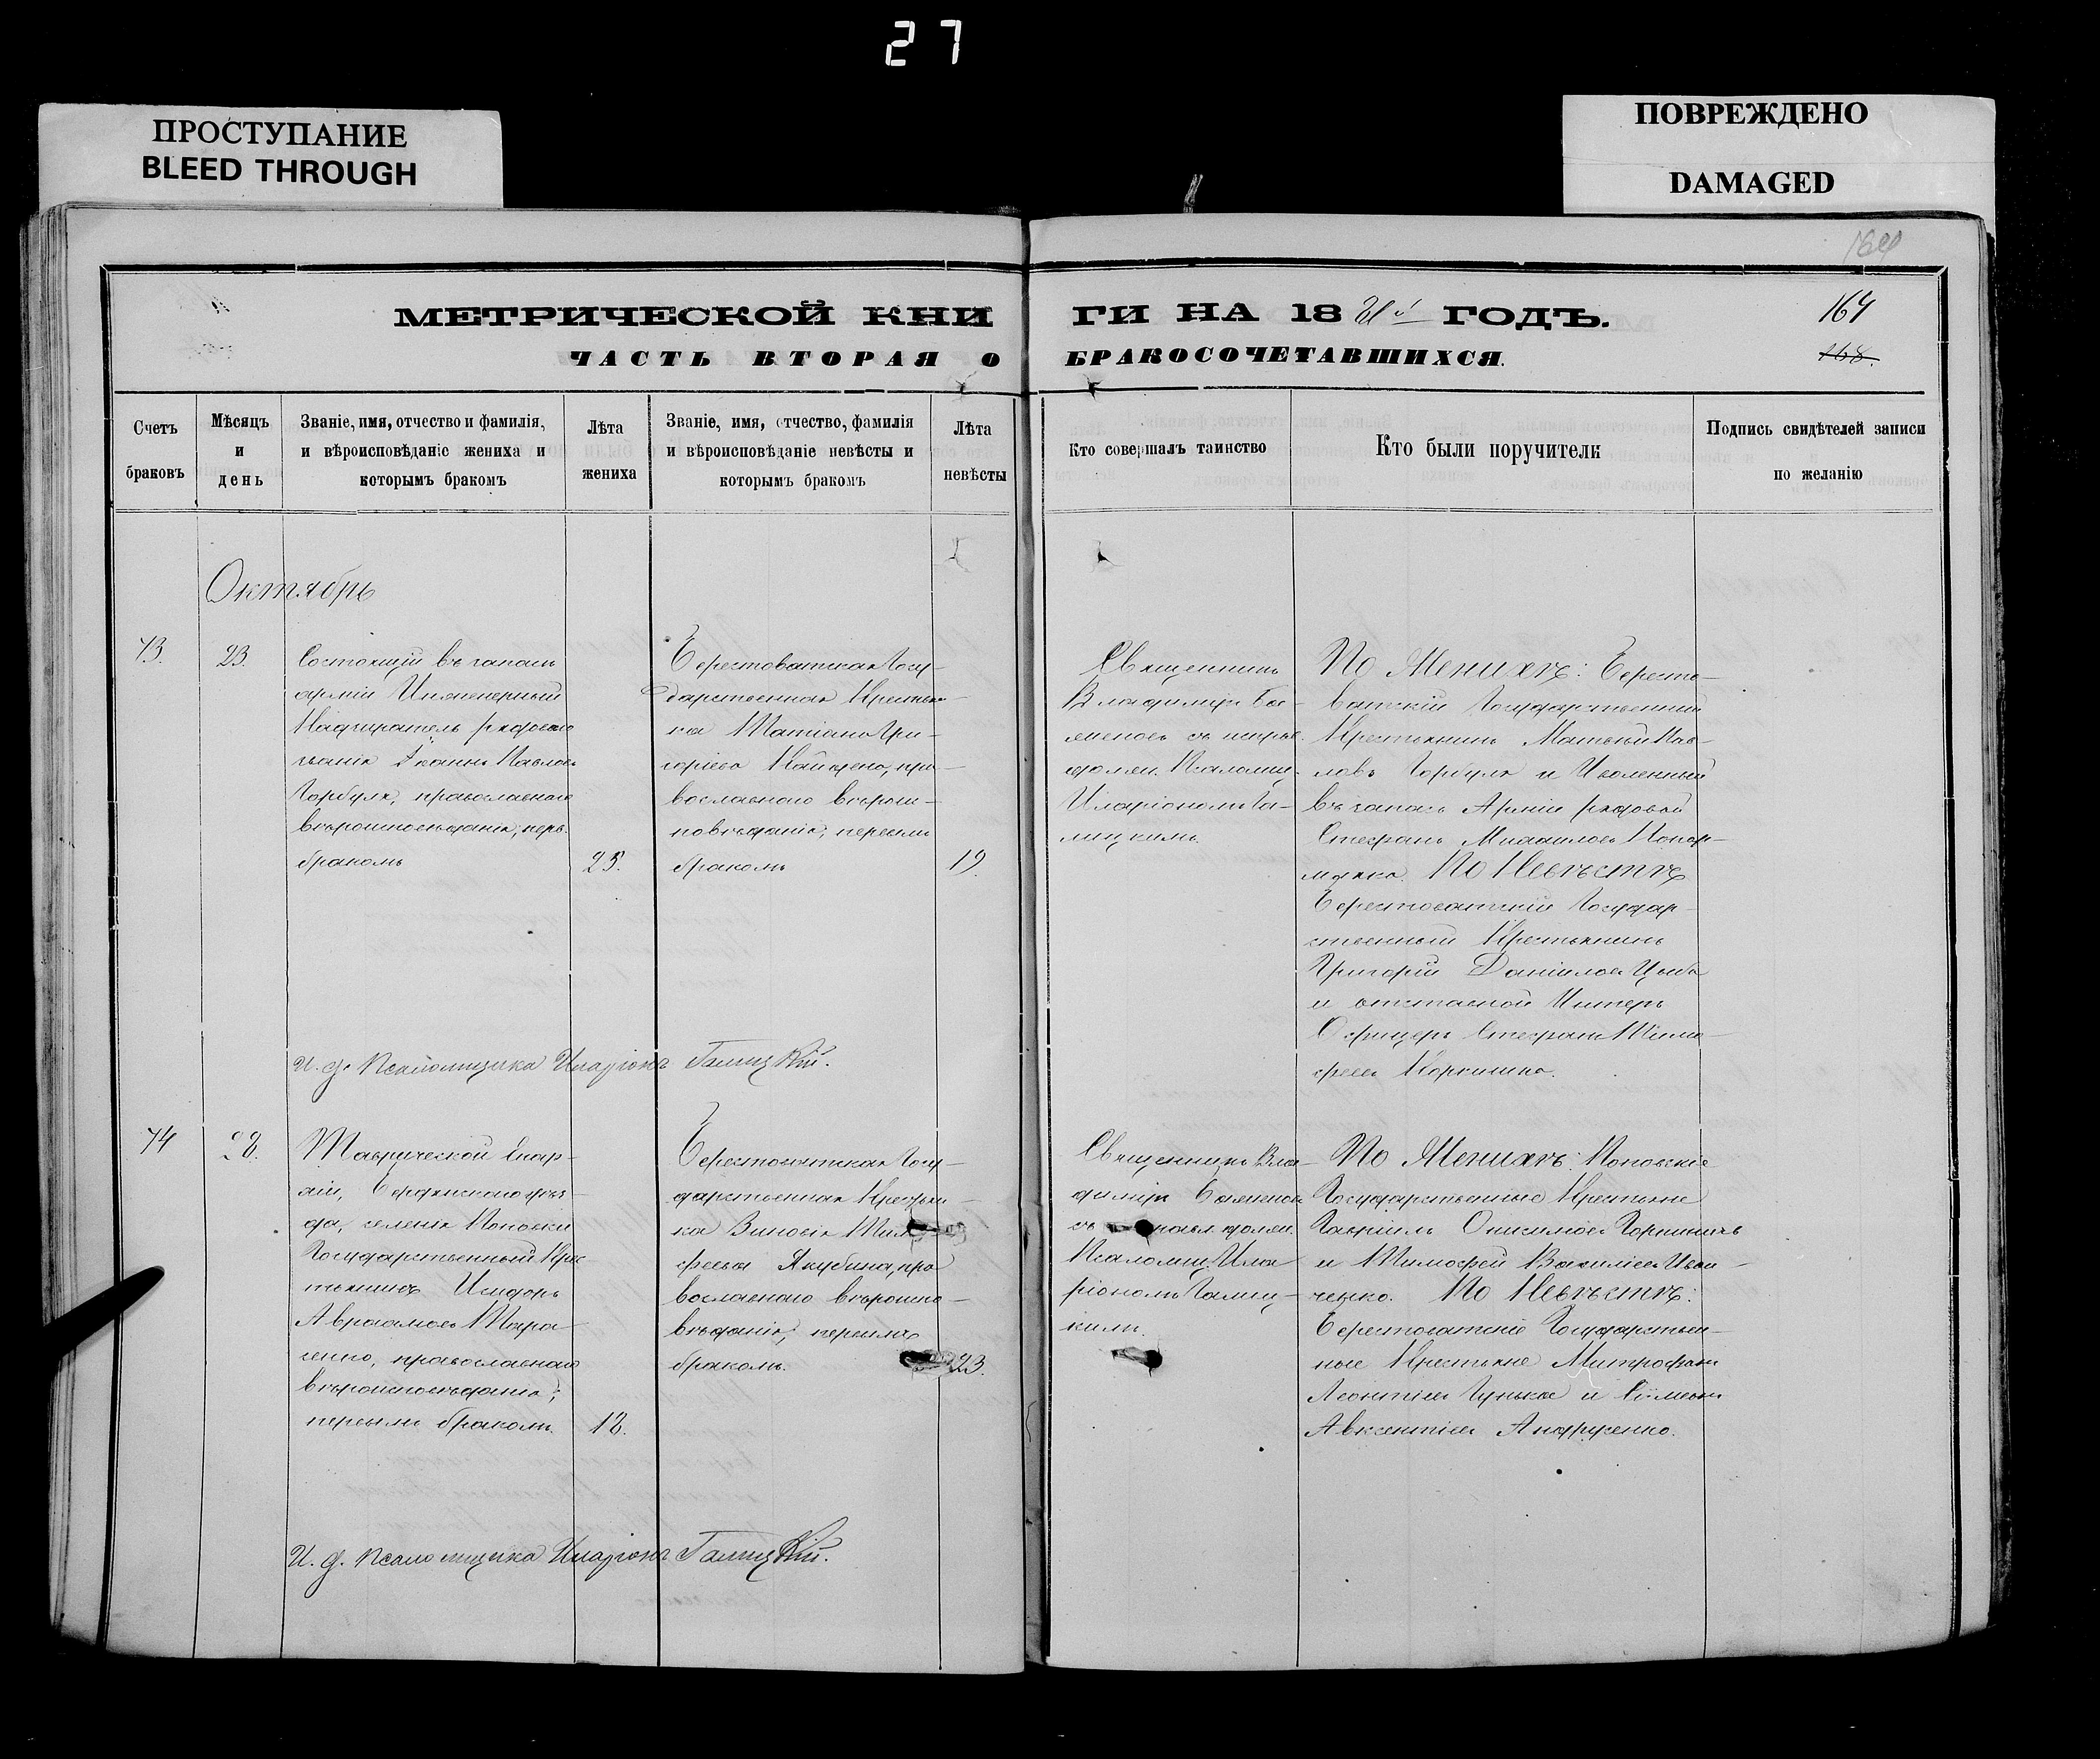 27
ПРОСТУПАНИЕ
BLEED THROUGH
ПОВРЕЖДЕНО
DAMAGED
МЕТРИЧЕСКОЙ КНИ
ГИ НА 18 ГОДЪ.
164
168.
ЧАСТЬ ВТОРАЯ О
БРАКОСОЧЕТАВШИХСЯ.
Счетъ
браковъ
Мѣсяцъ
и
день
Званіе, имя, отчество и фамилія,
и вѣроисповѣданіе жениха и
которымъ бракомъ
Лѣта
жениха
Званіе, имя, отчество, фамилія
и вѣроисповѣданіе невѣсты и
которымъ бракомъ
Лѣта
невѣсты
Кто совершалъ таинство
Кто были поручители
Подпись свидѣтелей записи
по желанію
Октябрь
73.
23.
Состоящій въ запасѣ
арміи Инженерный
Надзиратель рядоваго
званія Іоаннъ Павловъ
Горбуля, православнаго
вѣроисповѣданія, перв.
бракомъ
25.
Берестоватская Госу-
дарственная Крестьян-
ка Татіана Гри-
горіева, пра-
вославнаго вѣроис-
повѣданія, первымъ
бракомъ
19.
Священникъ
Владиміръ Ба-
женовъ съ исправ.
должн. Псаломщ.
Иларіономъ Га-
лицкимъ.
По Женихѣ: Бересто-
ватскій Государственный
Крестьянинъ Матвѣй Пав-
ловъ Горбуля и Уволенный
въ запасъ Арміи рядовой
Стефанъ Михаиловъ
По Невѣстѣ
Берестоватскій Государ-
ственный Крестьянинъ
Григорій Даніиловъ Цыба
и отставной Унтеръ
Офицеръ Стефанъ Тимо-
феевъ
И. д. Псаломщика Иларіонъ Галицкій.
74
28.
Таврической Епар-
хіи, Бердянскаго уѣз-
да, селенія Поповки
Государственный Крес-
тьянинъ Исидоръ
Авраамовъ Тара-
сенко, православнаго
вѣроисповѣданія;
первымъ бракомъ.
18.
Берестоватская Госу-
дарственная Крестьян-
ка Зиновія Тимо-
феева Якубина, пра-
вославнаго вѣроиспо-
вѣданія; первымъ
бракомъ.
23.
Священникъ Вла-
диміръ Баженовъ
съ должн.
Псаломщ. Ила-
ріономъ Галиц-
кимъ.
По Женихѣ: Поповскіе
Государственные Крестьяне
Гавріилъ Онисимовъ
и Тимофей Василіевъ Иван-
ченко. По Невѣстѣ:
Берестоватскіе Государствен-
ные Крестьяне Митрофанъ
Леонтіевъ Гунька и Симеонъ
Авксентіевъ Андрусенко.
И. д. Псаломщика Иларіонъ Галицкій.